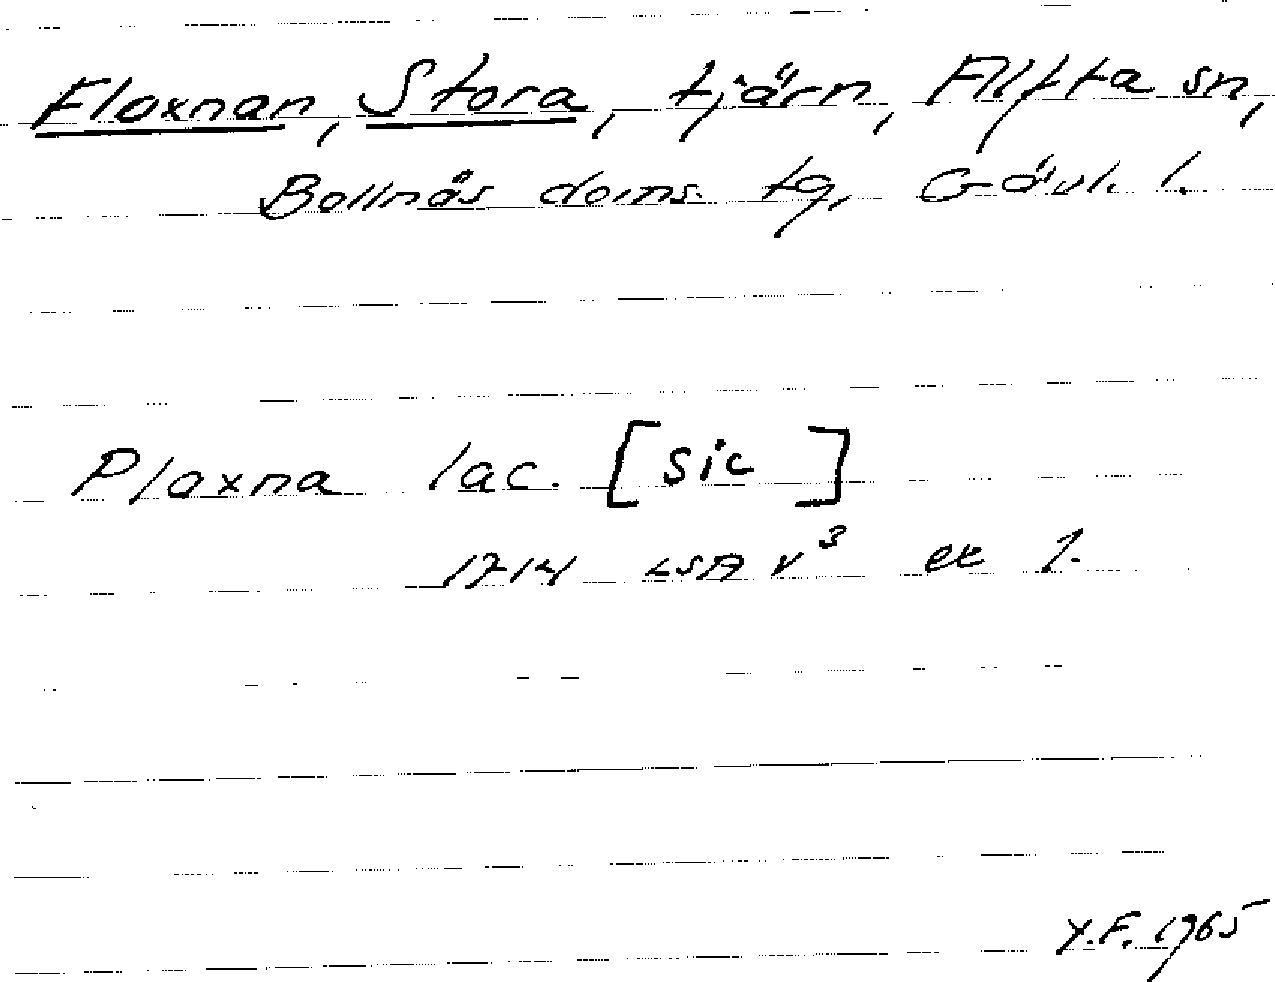 Floxnan, Stora, tjärn, Alfta sn,
Bollnäs doms. tg, Gävl. l.
Ploxna lac. [sic]
1714 LSA v³ ex 1.
Y.F. 1965